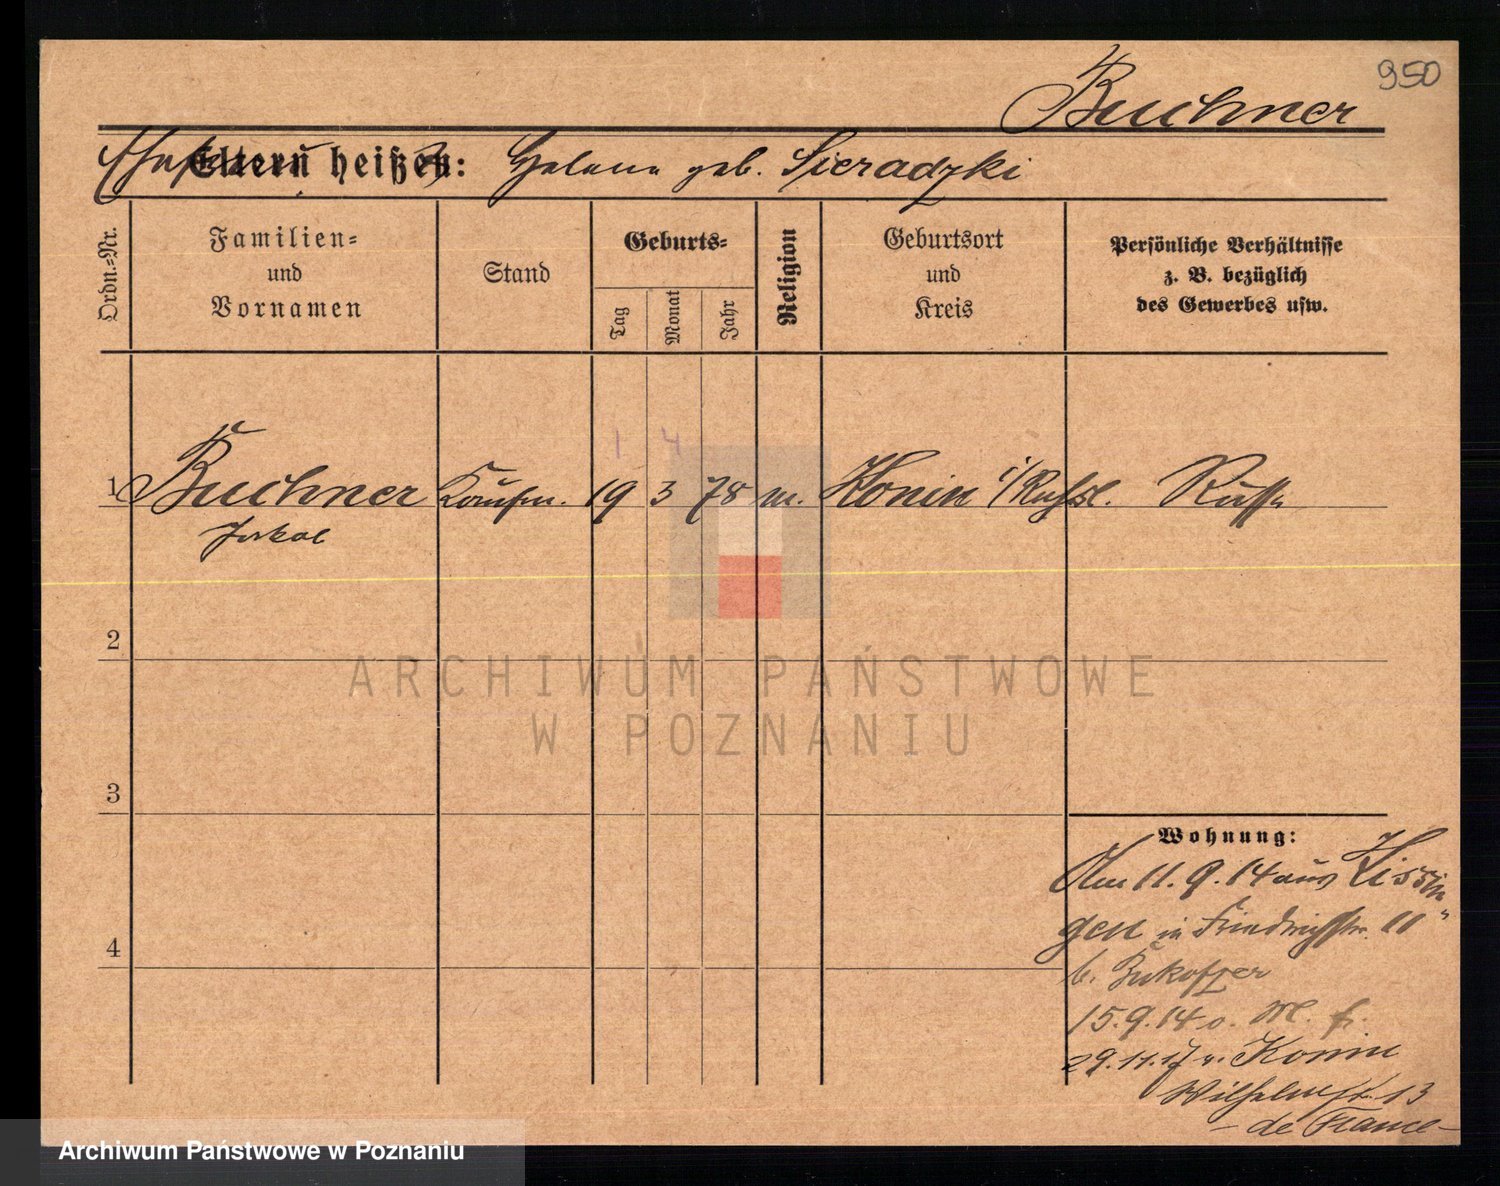 950
Buchner
Eltern heißen: Helena geb. Sieradzki
Ordn.-Nr.
Familien-
und
Vornamen
Stand
Geburts-
Tag
Monat
Jahr
Religion
Geburtsort
und
Kreis
Persönliche Verhältnisse
z. B. bezüglich
des Gewerbes usw.
1 4
1 Buchner Kaufm. 19 3 78 m. Konin i/Russl. Russe
2
3
4
Wohnung:
Am 11.9.14 aus Kissin
gen in Friedrichstr. 11
b. Bukofzer
15.9.14 o. M. fr.
29.11.17 v. Konin
Wilhelmstr. 13
- de France -
ARCHIWUM PAŃSTWOWE
W POZNANIU
Archiwum Państwowe w Poznaniu